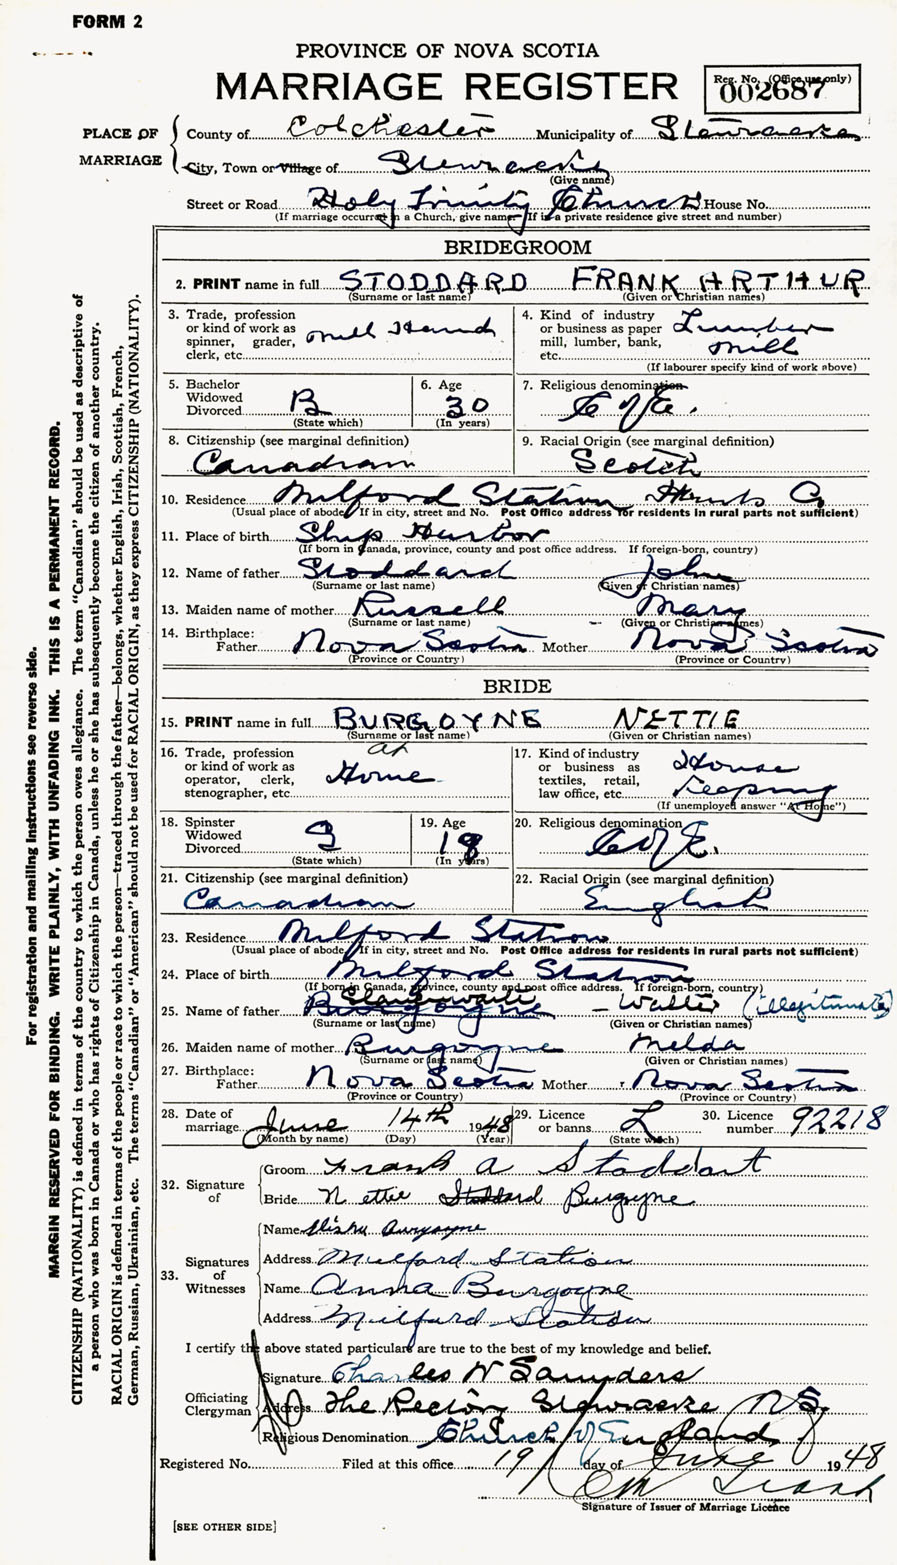 FORM 2
PROVINCE OF NOVA SCOTIA
MARRIAGE REGISTER
Reg. No. (Office use only)
002687
PLACE OF MARRIAGE
County of Colchester Municipality of Stewiacke
City, Town or Village of Stewiacke
(Give name)
Street or Road Holy Trinity Church House No.
(If marriage occurred in a Church, give name. If in a private residence give street and number)
BRIDEGROOM
2. PRINT name in full STODDARD FRANK ARTHUR
(Surname or last name) (Given or Christian names)
3. Trade, profession or kind of work as spinner, grader, clerk, etc. Mill Hand
4. Kind of industry or business as paper mill, lumber, bank, etc. Lumber Mill
(If labourer specify kind of work above)
5. Bachelor Widowed Divorced B
(State which)
6. Age 30
(In years)
7. Religious denomination C of E.
8. Citizenship (see marginal definition) Canadian
9. Racial Origin (see marginal definition) Scotch
10. Residence Milford Station Hants Co
(Usual place of abode. If in city, street and No. Post Office address for residents in rural parts not sufficient)
11. Place of birth Ship Harbor
(If born in Canada, province, county and post office address. If foreign-born, country)
12. Name of father Stoddard John
(Surname or last name) (Given or Christian names)
13. Maiden name of mother Russell Mary
(Surname or last name) (Given or Christian names)
14. Birthplace: Father Nova Scotia Mother Nova Scotia
(Province or Country) (Province or Country)
BRIDE
15. PRINT name in full BURGOYNE NETTIE
(Surname or last name) (Given or Christian names)
16. Trade, profession or kind of work as operator, clerk, stenographer, etc. at Home
17. Kind of industry or business as textiles, retail, law office, etc. House Keeping
(If unemployed answer "At Home")
18. Spinster Widowed Divorced S
(State which)
19. Age 18
(In years)
20. Religious denomination C of E.
21. Citizenship (see marginal definition) Canadian
22. Racial Origin (see marginal definition) English
23. Residence Milford Station
(Usual place of abode. If in city, street and No. Post Office address for residents in rural parts not sufficient)
24. Place of birth Milford Station
(If born in Canada, province, county and post office address. If foreign-born, country)
25. Name of father Burgoyne – Walter (illegitimate)
(Surname or last name) (Given or Christian names)
26. Maiden name of mother Burgoyne Melda
(Surname or last name) (Given or Christian names)
27. Birthplace: Father Nova Scotia Mother Nova Scotia
(Province or Country) (Province or Country)
28. Date of marriage June 14th 1948
(Month by name) (Day) (Year)
29. Licence or banns L
(State which)
30. Licence number 92218
32. Signature of
Groom Frank A Stoddart
Bride Nettie Stoddard Burgoyne
33. Signatures of Witnesses
Name Burgoyne
Address Milford Station
Name Anna Burgoyne
Address Milford Station
I certify the above stated particulars are true to the best of my knowledge and belief.
Officiating Clergyman
Signature Charles W Saunders
Address The Rectory Stewiacke N.S.
Religious Denomination Church of England
Registered No. Filed at this office 19 day of June 1948
Signature of Issuer of Marriage Licence
[SEE OTHER SIDE]
For registration and mailing instructions see reverse side.
MARGIN RESERVED FOR BINDING. WRITE PLAINLY, WITH UNFADING INK. THIS IS A PERMANENT RECORD.
CITIZENSHIP (NATIONALITY) is defined in terms of the country to which the person owes allegiance. The term "Canadian" should be used as descriptive of
a person who was born in Canada or who has rights of Citizenship in Canada, unless he or she has subsequently become the citizen of another country.
RACIAL ORIGIN is defined in terms of the people or race to which the person—traced through the father—belongs, whether English, Irish, Scottish, French,
German, Russian, Ukrainian, etc. The terms "Canadian" or "American" should not be used for RACIAL ORIGIN, as they express CITIZENSHIP (NATIONALITY).